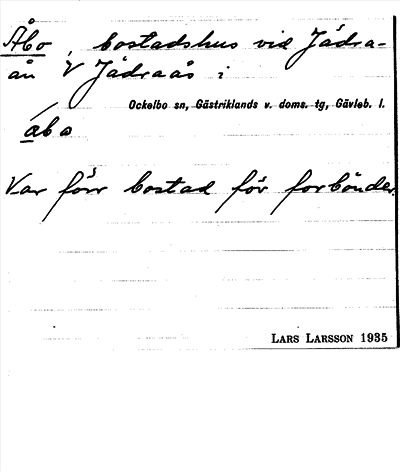 Åbo, bostadshus vid Jädra-
ån V Jädraås i
Ockelbo sn, Gästriklands v. doms. tg, Gävleb. l.
åbo
Var förr bostad för forbönder.
LARS LARSSON 1935